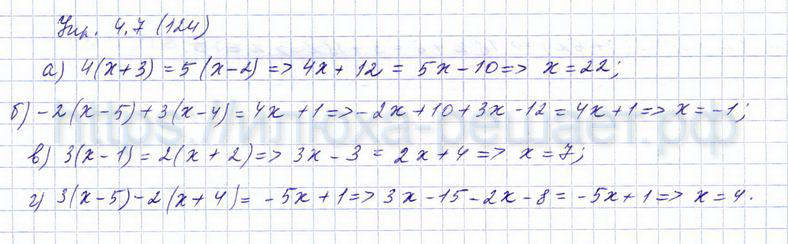 Упр. 4.7 (124)
а) 4(x+3) = 5(x-2) => 4x + 12 = 5x - 10 => x = 22;
б) -2(x-5) + 3(x-4) = 4x + 1 => -2x + 10 + 3x - 12 = 4x + 1 => x = -1;
https://илюха-решает.рф
в) 3(x-1) = 2(x+2) => 3x - 3 = 2x + 4 => x = 7;
г) 3(x-5) - 2(x+4) = -5x + 1 => 3x - 15 - 2x - 8 = -5x + 1 => x = 4.